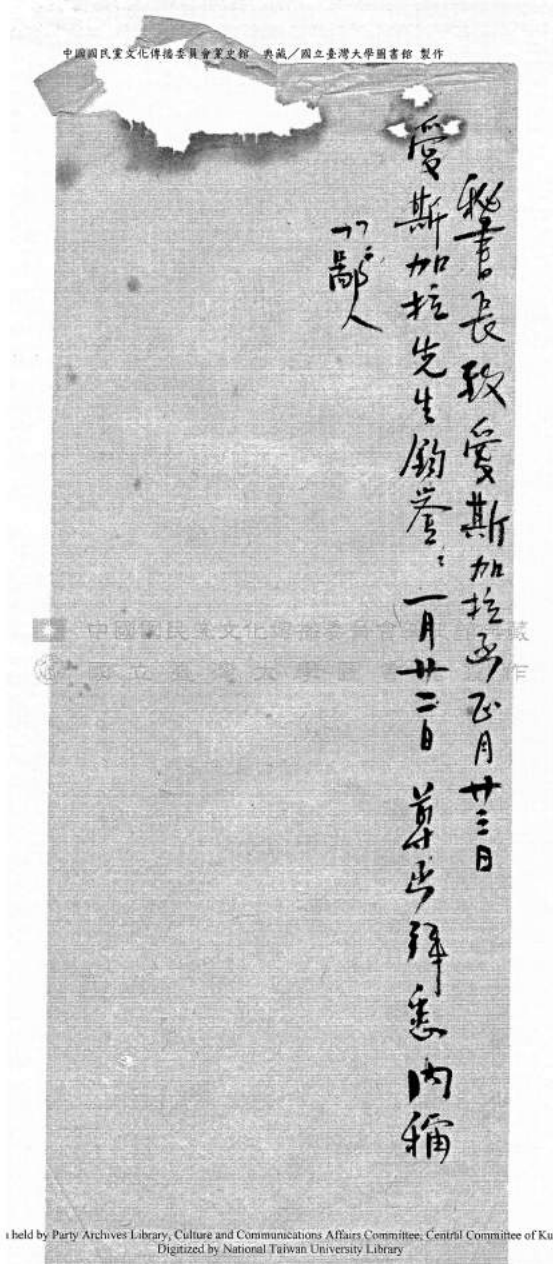 中國國民黨文化傳播委員會黨史館 典藏／國立臺灣大學圖書館 製作
秘書長致愛斯加拉函正月廿三日
愛斯加拉先生鈞鑒：一月廿二日 尊函拜悉內稱
「鄙人
中國國民黨文化傳播委員會 藏
國立臺灣大學圖 作
held by Party Archives Library, Culture and Communications Affairs Committee, Central Committee of Ku
Digitized by National Taiwan University Library